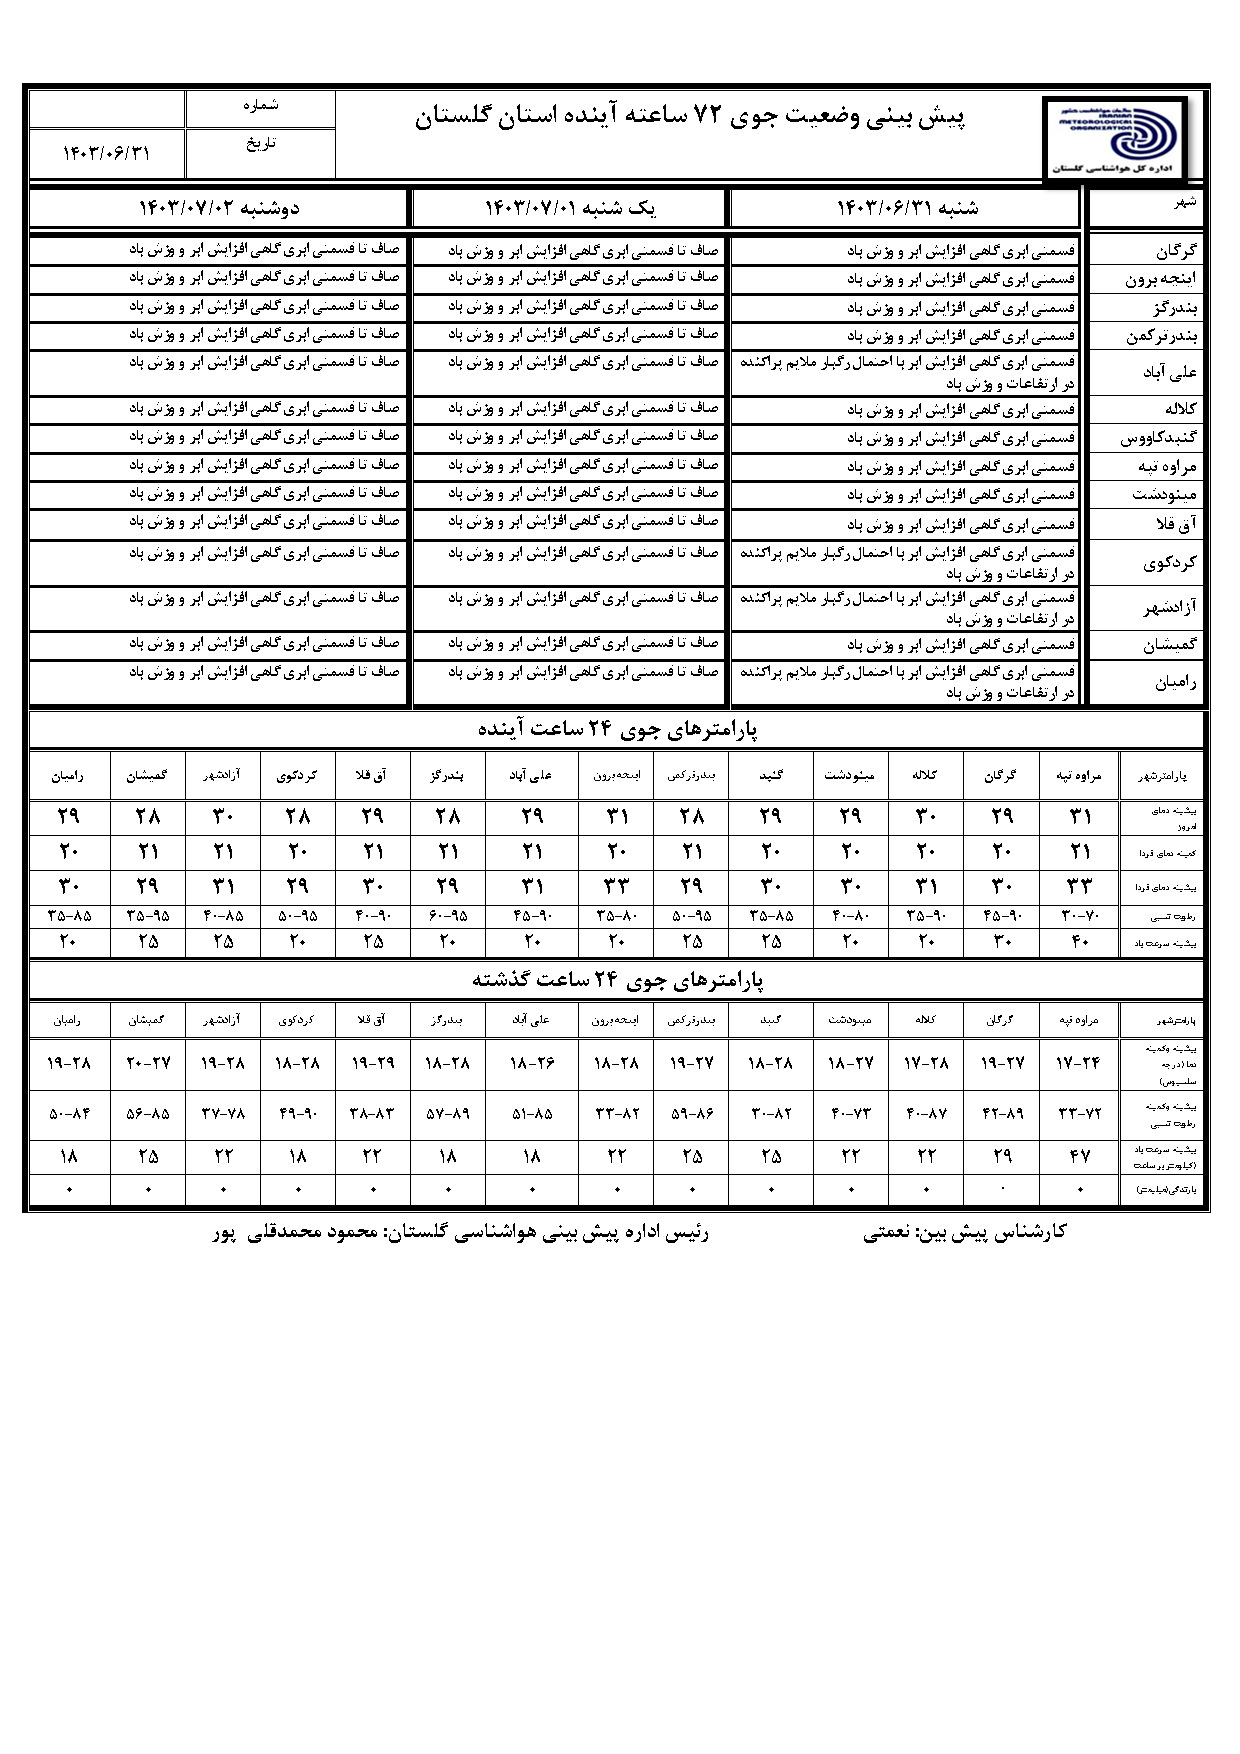 سازمان هواشناسی کشور
IRANIAN
METEOROLOGICAL
ORGANIZATION
اداره کل هواشناسی گلستان
پیش بینی وضعیت جوی ۷۲ ساعته آینده استان گلستان
شماره
تاریخ ۱۴۰۳/۰۶/۳۱
شهر شنبه ۱۴۰۳/۰۶/۳۱ یک شنبه ۱۴۰۳/۰۷/۰۱ دوشنبه ۱۴۰۳/۰۷/۰۲
گرگان قسمتی ابری گاهی افزایش ابر و وزش باد صاف تا قسمتی ابری گاهی افزایش ابر و وزش باد صاف تا قسمتی ابری گاهی افزایش ابر و وزش باد
اینچه برون قسمتی ابری گاهی افزایش ابر و وزش باد صاف تا قسمتی ابری گاهی افزایش ابر و وزش باد صاف تا قسمتی ابری گاهی افزایش ابر و وزش باد
بندرگز قسمتی ابری گاهی افزایش ابر و وزش باد صاف تا قسمتی ابری گاهی افزایش ابر و وزش باد صاف تا قسمتی ابری گاهی افزایش ابر و وزش باد
بندرترکمن قسمتی ابری گاهی افزایش ابر و وزش باد صاف تا قسمتی ابری گاهی افزایش ابر و وزش باد صاف تا قسمتی ابری گاهی افزایش ابر و وزش باد
علی آباد قسمتی ابری گاهی افزایش ابر با احتمال رگبار ملایم پراکنده صاف تا قسمتی ابری گاهی افزایش ابر و وزش باد صاف تا قسمتی ابری گاهی افزایش ابر و وزش باد
در ارتفاعات و وزش باد
کلاله قسمتی ابری گاهی افزایش ابر و وزش باد صاف تا قسمتی ابری گاهی افزایش ابر و وزش باد صاف تا قسمتی ابری گاهی افزایش ابر و وزش باد
گنبدکاووس قسمتی ابری گاهی افزایش ابر و وزش باد صاف تا قسمتی ابری گاهی افزایش ابر و وزش باد صاف تا قسمتی ابری گاهی افزایش ابر و وزش باد
مراوه تپه قسمتی ابری گاهی افزایش ابر و وزش باد صاف تا قسمتی ابری گاهی افزایش ابر و وزش باد صاف تا قسمتی ابری گاهی افزایش ابر و وزش باد
مینودشت قسمتی ابری گاهی افزایش ابر و وزش باد صاف تا قسمتی ابری گاهی افزایش ابر و وزش باد صاف تا قسمتی ابری گاهی افزایش ابر و وزش باد
آق قلا قسمتی ابری گاهی افزایش ابر و وزش باد صاف تا قسمتی ابری گاهی افزایش ابر و وزش باد صاف تا قسمتی ابری گاهی افزایش ابر و وزش باد
کردکوی قسمتی ابری گاهی افزایش ابر با احتمال رگبار ملایم پراکنده صاف تا قسمتی ابری گاهی افزایش ابر و وزش باد صاف تا قسمتی ابری گاهی افزایش ابر و وزش باد
در ارتفاعات و وزش باد
آزادشهر قسمتی ابری گاهی افزایش ابر با احتمال رگبار ملایم پراکنده صاف تا قسمتی ابری گاهی افزایش ابر و وزش باد صاف تا قسمتی ابری گاهی افزایش ابر و وزش باد
در ارتفاعات و وزش باد
گمیشان قسمتی ابری گاهی افزایش ابر و وزش باد صاف تا قسمتی ابری گاهی افزایش ابر و وزش باد صاف تا قسمتی ابری گاهی افزایش ابر و وزش باد
رامیان قسمتی ابری گاهی افزایش ابر با احتمال رگبار ملایم پراکنده صاف تا قسمتی ابری گاهی افزایش ابر و وزش باد صاف تا قسمتی ابری گاهی افزایش ابر و وزش باد
در ارتفاعات و وزش باد
پارامترهای جوی ۲۴ ساعت آینده
پارامترشهر مراوه تپه گرگان کلاله مینودشت گنبد بندرترکمن اینچه برون علی آباد بندرگز آق قلا کردکوی آزادشهر گمیشان رامیان
بیشینه دمای امروز ۳۱ ۲۹ ۳۰ ۲۹ ۲۹ ۲۸ ۳۱ ۲۹ ۲۸ ۲۹ ۲۸ ۳۰ ۲۸ ۲۹
کمینه دمای فردا ۲۱ ۲۰ ۲۰ ۲۰ ۲۰ ۲۱ ۲۰ ۲۱ ۲۱ ۲۱ ۲۰ ۲۱ ۲۱ ۲۰
بیشینه دمای فردا ۳۳ ۳۰ ۳۱ ۳۰ ۳۰ ۲۹ ۳۳ ۳۱ ۲۹ ۳۰ ۲۹ ۳۱ ۲۹ ۳۰
رطوبت نسبی ۳۰-۷۰ ۴۵-۹۰ ۳۵-۹۰ ۴۰-۸۰ ۳۵-۸۵ ۵۰-۹۵ ۳۵-۸۰ ۴۵-۹۰ ۶۰-۹۵ ۴۰-۹۰ ۵۰-۹۵ ۴۰-۸۵ ۳۵-۹۵ ۳۵-۸۵
بیشینه سرعت باد ۴۰ ۳۰ ۲۰ ۲۰ ۲۵ ۲۵ ۲۰ ۲۰ ۲۰ ۲۵ ۲۰ ۲۵ ۲۵ ۲۰
پارامترهای جوی ۲۴ ساعت گذشته
پارامترشهر مراوه تپه گرگان کلاله مینودشت گنبد بندرترکمن اینچه برون علی آباد بندرگز آق قلا کردکوی آزادشهر گمیشان رامیان
بیشینه وکمینه دما (درجه سلسیوس) ۱۷-۲۴ ۱۹-۲۷ ۱۷-۲۸ ۱۸-۲۷ ۱۸-۲۸ ۱۹-۲۷ ۱۸-۲۸ ۱۸-۲۶ ۱۸-۲۸ ۱۹-۲۹ ۱۸-۲۸ ۱۹-۲۸ ۲۰-۲۷ ۱۹-۲۸
بیشینه وکمینه رطوبت نسبی ۳۳-۷۲ ۴۲-۸۹ ۴۰-۸۷ ۴۰-۷۳ ۳۰-۸۲ ۵۹-۸۶ ۳۳-۸۲ ۵۱-۸۵ ۵۷-۸۹ ۳۸-۸۳ ۴۹-۹۰ ۳۷-۷۸ ۵۶-۸۵ ۵۰-۸۴
بیشینه سرعت باد (کیلومتر بر ساعت) ۴۷ ۲۹ ۲۲ ۲۲ ۲۵ ۲۵ ۲۲ ۱۸ ۱۸ ۲۲ ۱۸ ۲۲ ۲۵ ۱۸
بارندگی(میلیمتر) ۰ ۰ ۰ ۰ ۰ ۰ ۰ ۰ ۰ ۰ ۰ ۰ ۰ ۰
کارشناس پیش بین: نعمتی رئیس اداره پیش بینی هواشناسی گلستان: محمود محمدقلی پور